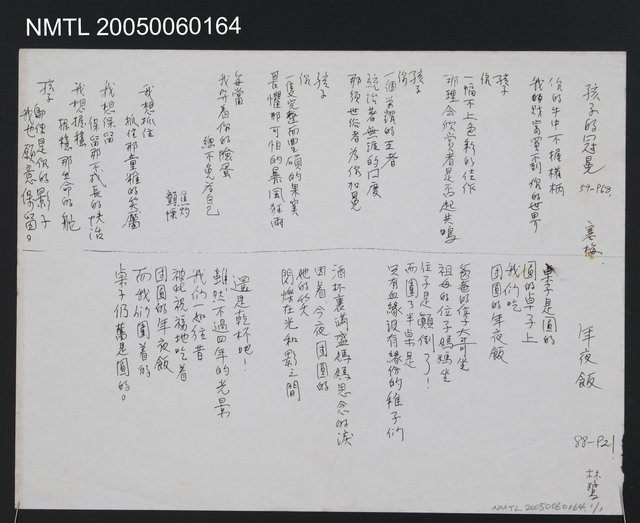 NMTL 20050060164
孩子的冠冕
59-P68
寒梅
你的手中不握權柄
我的財富買不到你的世界
孩子
你
一幅不上色彩的佳作
那理会欣賞者是否起共鳴
孩子
你
一個並非謂的王者
統治者無涯的口度
那須世俗者為你加冕
孩子
你
一隻完整而豐碩的果實
畏懼那可怕的暴風狂雨
每當
我守着你的陰霾
總不免為自己
焦灼
顫慄
我想抓住
抓住那童雅的笑靨
我想保留
保留那不成長的快活
我想握穩
握穩那生命的舵
孩子
即使是你的影子
我也願意保留。
年夜飯
88-P21
林鷺
桌子是圓的
圓的桌子上
我們吃
團圓的年夜飯
爸爸的位子大哥坐
祖母的位子媽媽坐
位子是顛倒了！
而圍了半桌是
只有血緣沒有緣份的稚子們
酒杯裏滿盛媽媽思念的淚
因着今夜團圓的
她的的笑
閃爍在光和影之間
還是乾杯吧！
雖然不過四年的光景
我們如往昔
彼此祝福地吃着
團圓的年夜飯
而我們圍着的
桌子仍舊是圓的。
NMTL 20050060164 1/1